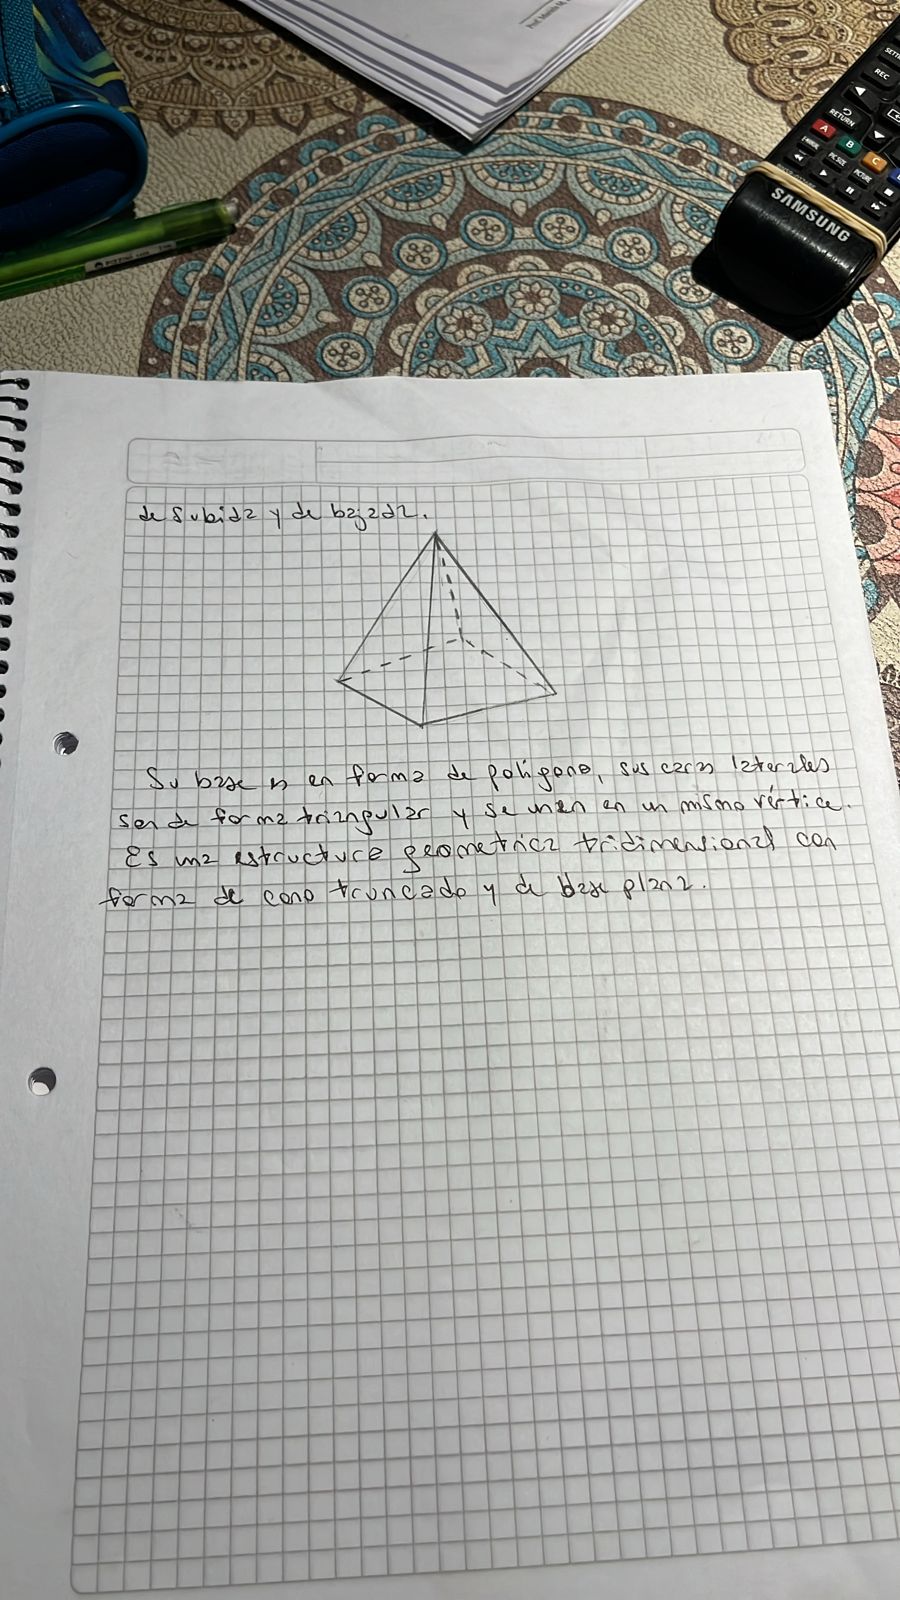 SETTI
REC
RETURN
A
B
C
E-MANUAL
P.SIZE
PICTURE
SAMSUNG
de subida y de bajada.
Su base es en forma de polígono, sus caras laterales
son de forma triangular y se unen en un mismo vértice.
Es una estructura geometrica tridimensional con
forma de cono truncado y de base plana.